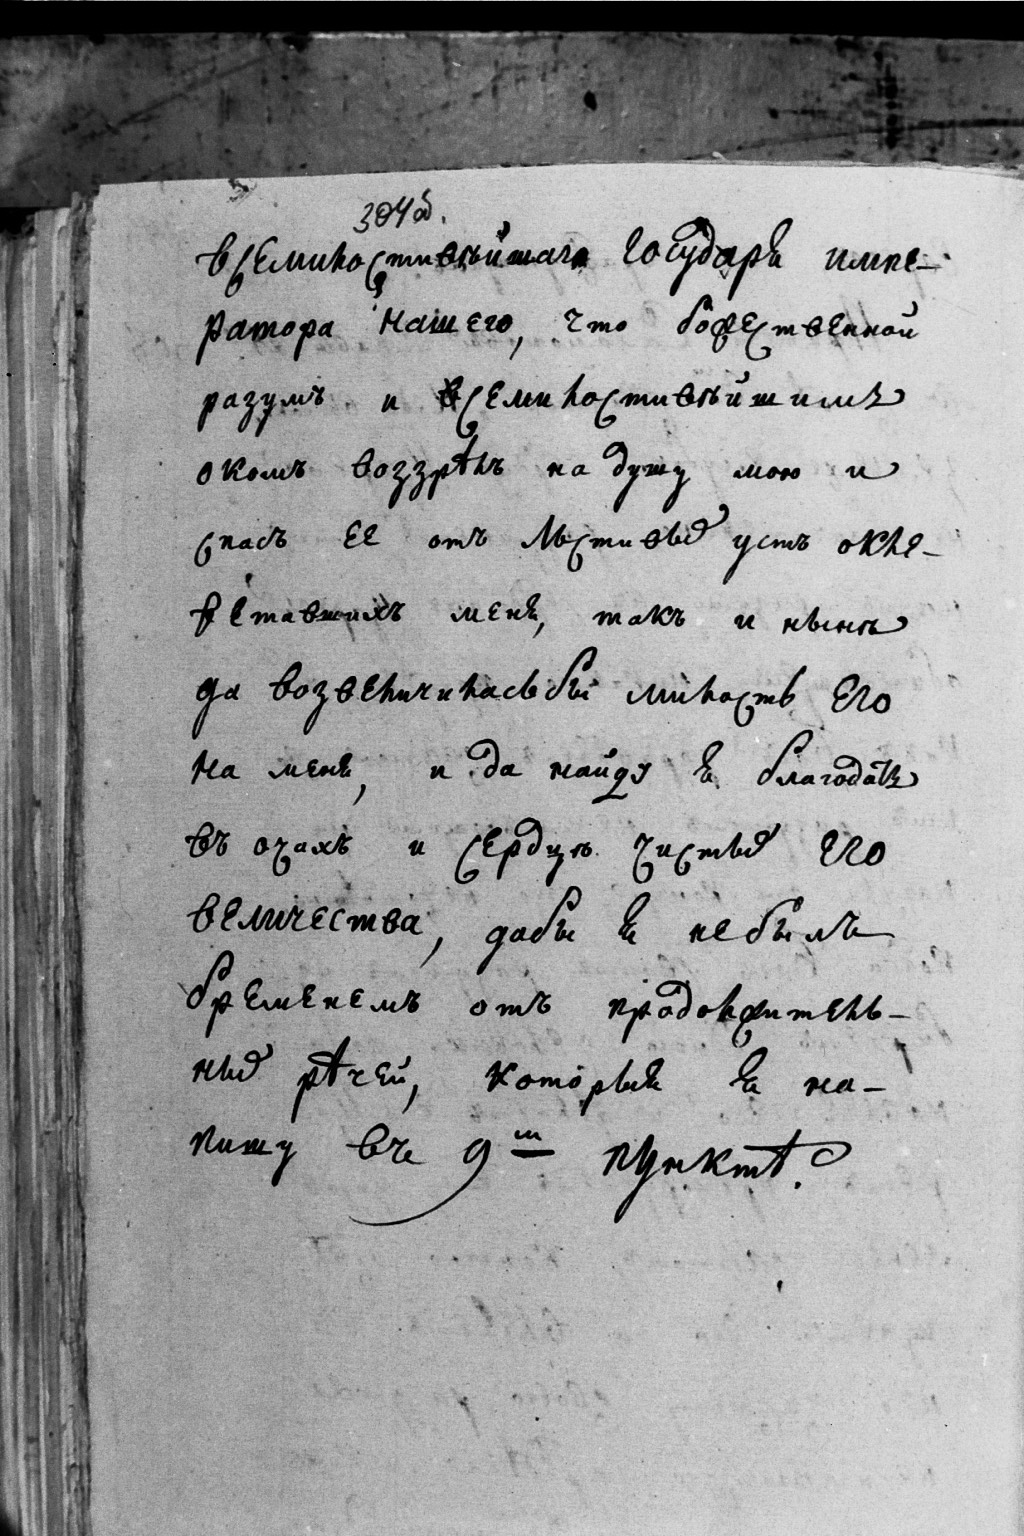 304б.
всемилостивѣйшаго Государя импе-
ратора нашего, что божественной
разумъ и всемилостивѣйшимъ
окомъ воззрѣлъ на душу мою и
спасъ ее отъ льстивыхъ устъ окле-
ветавшихъ меня, такъ и нынѣ
да возвеличилась бы милость Его
на меня, и да найду я благодать
въ очахъ и сердцѣ чистыхъ Его
величества, дабы я не былъ
бременемъ отъ продолжитель-
ныхъ рѣчей, которыя я на-
пишу въ 9ш пунктѣ.